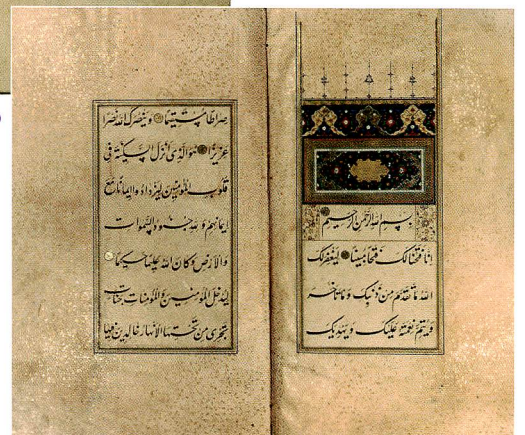 بسم الله الرحمن الرحيم
انا فتحنا لك فتحا مبينا ليغفر لك
الله ما تقدم من ذنبك وما تاخر
ويتم نعمته عليك ويهديك
صراطا مستقيما وينصرك الله نصرا
عزيزا هوالذى انزل السكينة فى
قلوب المؤمنين ليزدادوا ايمانا مع
ايمانهم ولله جنود السموات
والارض وكان الله عليما حكيما
ليدخل المؤمنين والمؤمنات جنات
تجرى من تحتها الانهار خالدين فيها